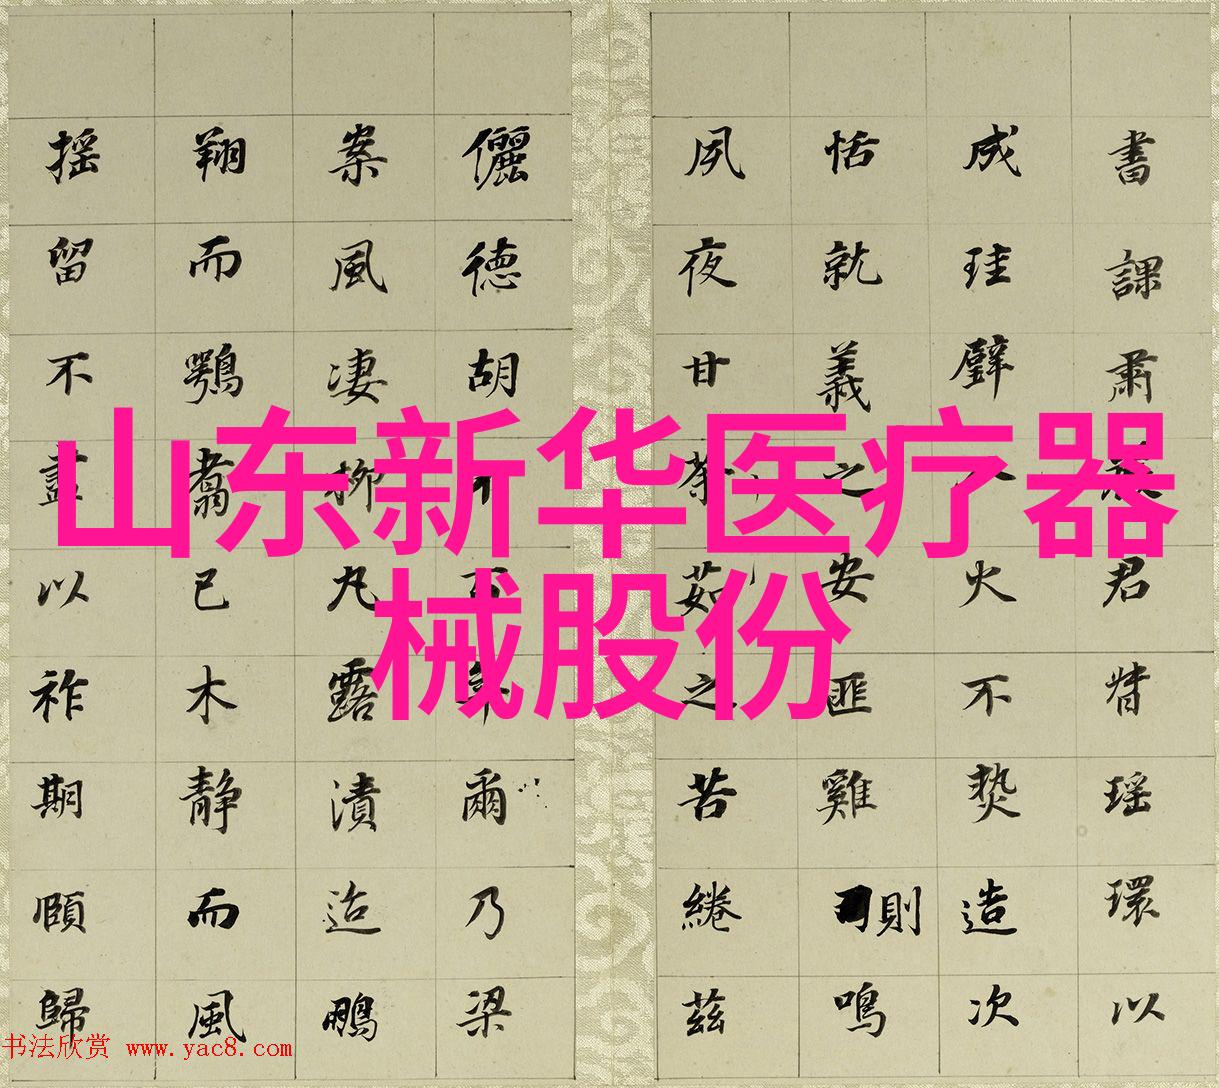 山东新华医疗器
械股份
書課肅君瑶環以
成珪璧火不熱造次
恬就義之安匪雞則鳴
夙夜甘荼茹之苦綣茲
儷德胡不百年爾乃梁
案風凄柳丸露漬迨鵬
翔而鶚翥已木靜而風
摇留不盡以祚期頤歸
书法欣赏 www.yac8.com